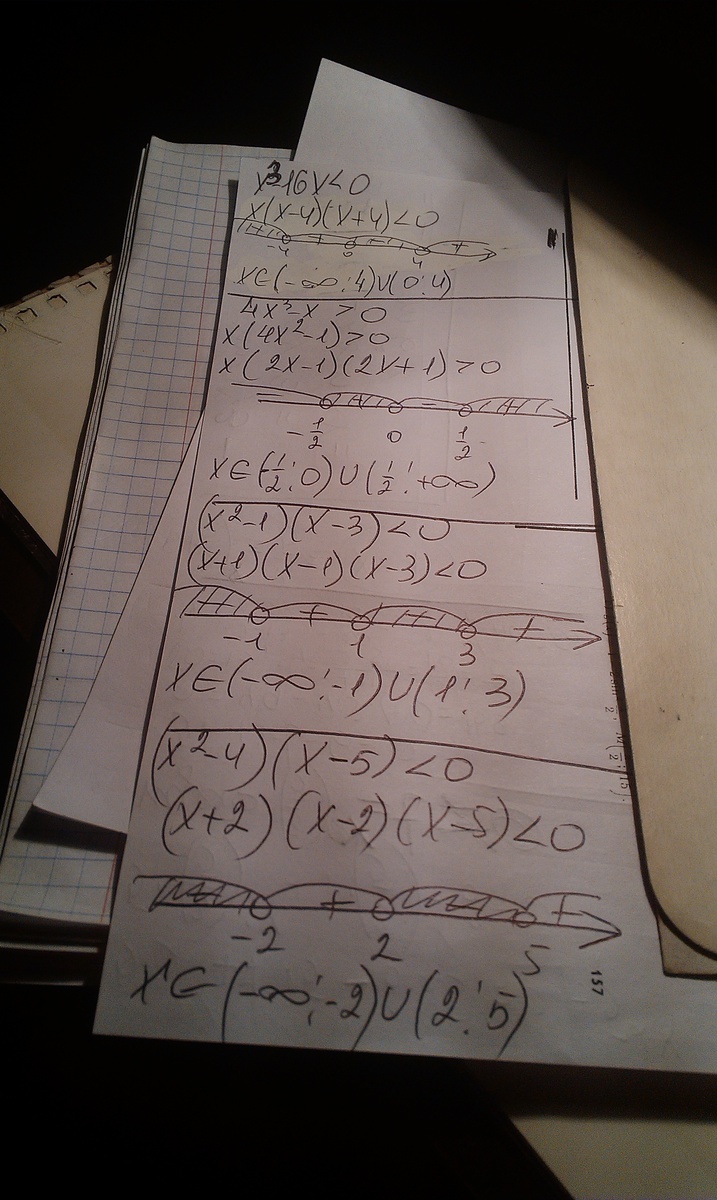 x³-16x<0
x(x-4)(x+4)<0
-4 + 0 4 +
x∈(-∞;4)∪(0;4)
4x³-x>0
x(4x²-1)>0
x(2x-1)(2x+1)>0
- + - +
-1/2 0 1/2
x∈(-1/2;0)∪(1/2;+∞)
(x²-1)(x-3)<0
(x+1)(x-1)(x-3)<0
+ +
-1 1 3
x∈(-∞;-1)∪(1;3)
(x²-4)(x-5)<0
(x+2)(x-2)(x-5)<0
+ +
-2 2 5
x∈(-∞;-2)∪(2;5)
157